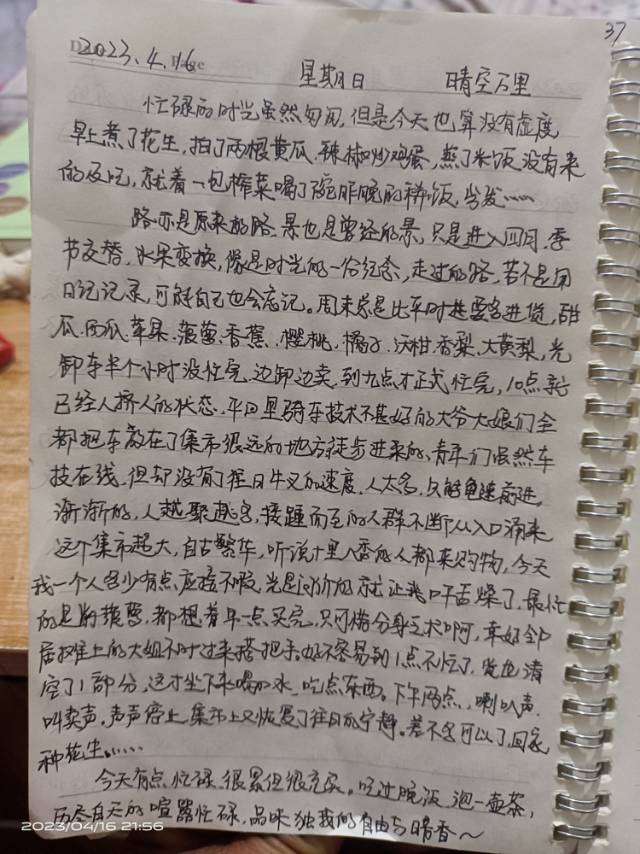 37
2023.4.16
星期日 晴空万里
忙碌的时光虽然匆匆,但是今天也算没有虚度
早上煮了花生,拍了两根黄瓜、辣椒炒鸡蛋,蒸了米饭没有来
的及吃,就着一包榨菜喝了碗昨晚的稀饭,出发……
路亦是原来的路,景也是曾经的景,只是进入四月,季
节交替,水果变换,像是时光的一份纪念,走过的路,若不是用
日记记录,可能自己也会忘记。周末总是比平时要多进货,甜
瓜、西瓜、苹果、菠萝、香蕉、樱桃、橘子、沃柑、香梨、大黄梨,光
卸车半个小时没忙完,边卸边卖,到九点才正式忙完,10点就
已经人挤人的状态,平日里骑车技术不甚好的大爷大娘们全
都把车放在了集市很远的地方徒步进来的,青年们虽然车
技在线,但却没有了往日牛叉的速度,人太多,只能龟速前进,
渐渐的,人越聚越多,接踵而至的人群不断从入口涌来
这个集市超大,自古繁华,听说十里八香的人都来购物,今天
我一个人多少有点应接不暇,光是问价的就让我口干舌燥了,最忙
的是削菠萝,都想着早一点买完,只可惜分身乏术啊,幸好邻
居摊上的大姐不时过来搭把手。好不容易到1点不忙了,货也清
空了1部分,这才坐下来喝口水,吃点东西。下午两点,喇叭声,
叫卖声,声声停止,集市上又恢复了往日的宁静。差不多可以了,回家
种花生……
今天有点忙碌,很累但很充实。吃过晚饭,泡一壶茶,
历尽白天的喧嚣忙碌,品味独我的自由与暗香~
2023/04/16 21:56